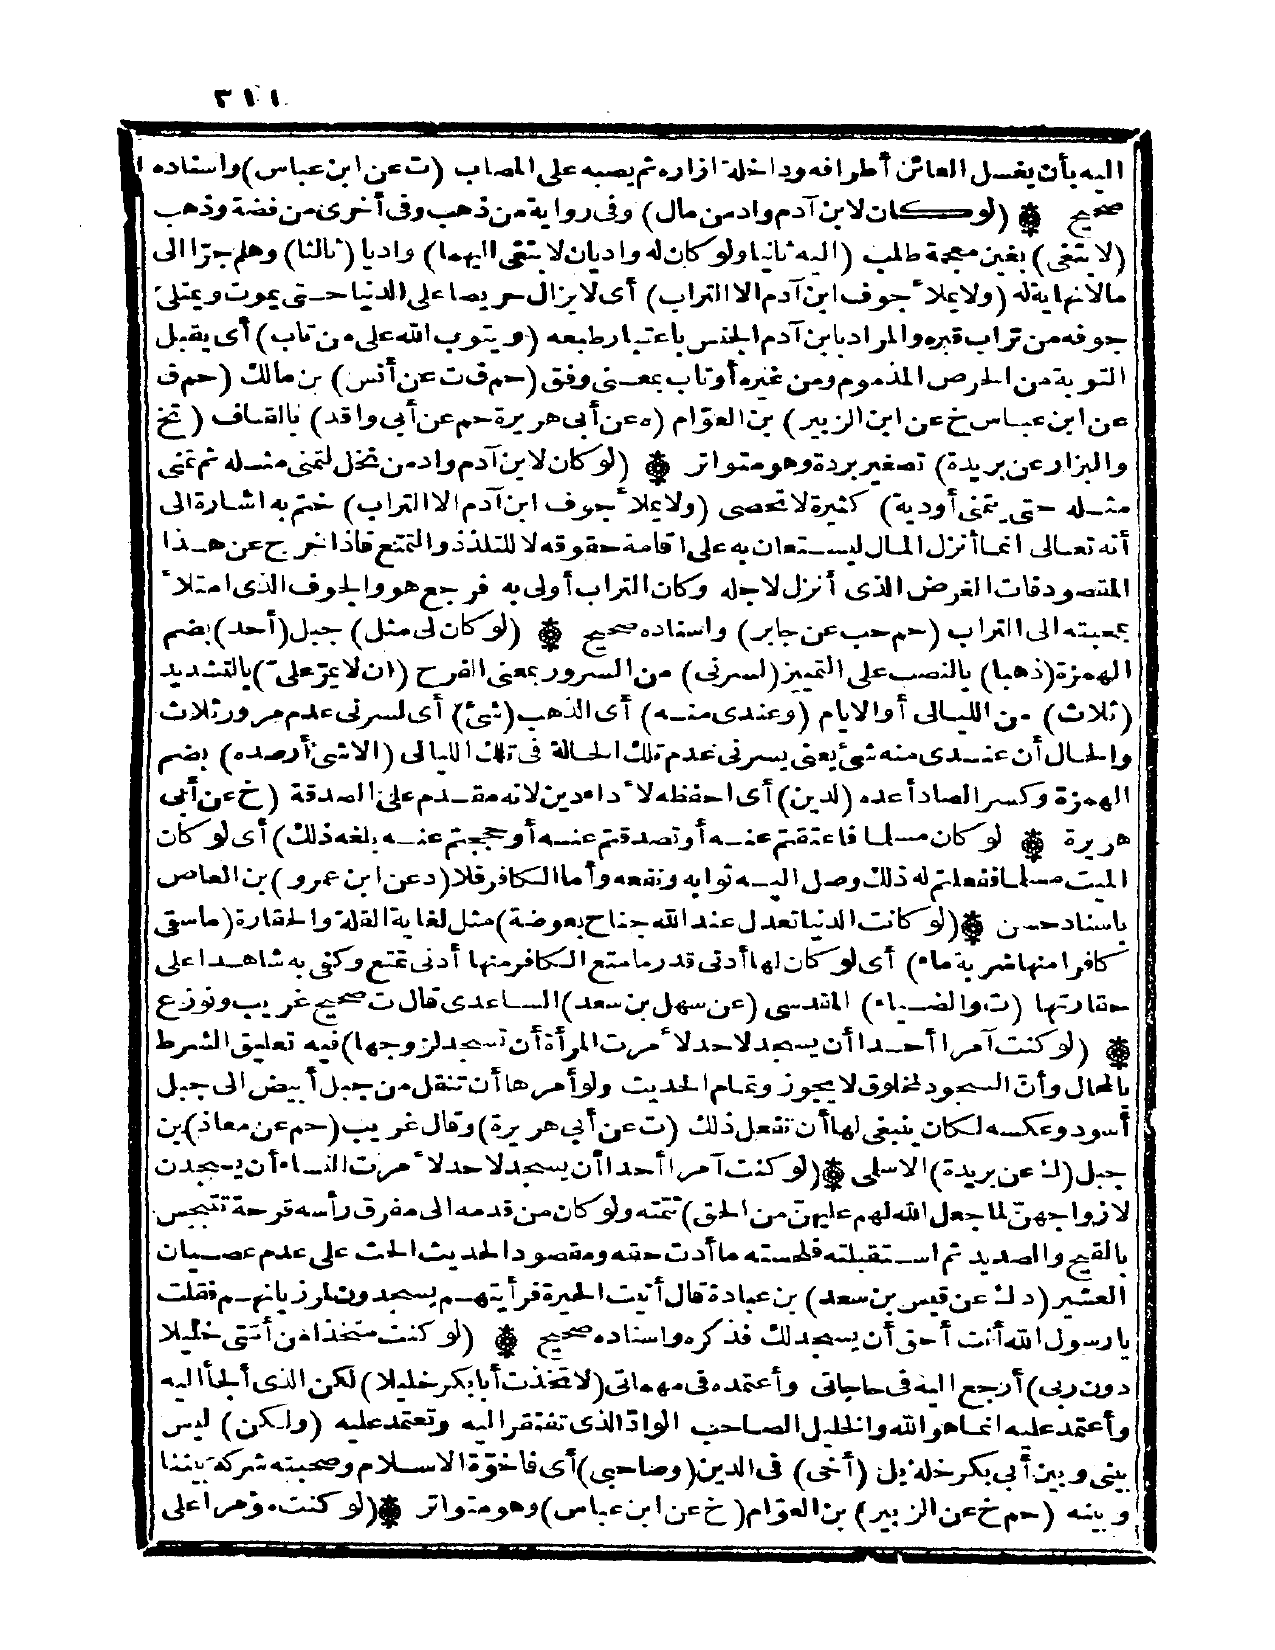 ٣١١
اليه بأن يغسل العائن أطرافه وداخلة ازاره ثم يصبه على المصاب (ت عن ابن عباس) واسناده
صحيح ۞ (لو كان لابن آدم واد من مال) وفى رواية من ذهب وفى أخرى من فضة وذهب
(لابتغى) بغين معجمة طلب (اليه ثانيا ولو كان له واديان لابتغى اليهما) واديا (ثالثا) وهلم جرّا الى
مالانهاية له (ولا يملأ جوف ابن آدم الا التراب) أى لا يزال حريصا على الدنيا حتى يموت ويمتلئ
جوفه من تراب قبره والمراد بابن آدم الجنس باعتبار طبعه (ويتوب الله على من تاب) أى يقبل
التوبة من الحرص المذموم ومن غيره أو تاب بمعنى وفق (حم ق ت عن أنس) بن مالك (حم ق
عن ابن عباس خ عن ابن الزبير) بن العوّام (ه عن أبى هريرة حم عن أبى واقد) بالقاف (تخ
والبزار عن بريدة) تصغير بردة وهو متواتر ۞ (لو كان لابن آدم واد من نخل لتمنى مثله ثم تمنى
مثله حتى يتمنى أودية) كثيرة لا تحصى (ولا يملأ جوف ابن آدم الا التراب) ختم به اشارة الى
أنه تعالى انما أنزل المال ليستعان به على اقامة حقوقه لا للتلذذ والتمتع فاذا خرج عن هذا
المقصود فات الغرض الذى أنزل لاجله وكان التراب أولى به فرجع هو والجوف الذى امتلأ
بمحبته الى التراب (حم حب عن جابر) واسناده صحيح ۞ (لو كان لى مثل) جبل (أحد) بضم
الهمزة (ذهبا) بالنصب على التمييز (لسرنى) من السرور بمعنى الفرح (ان لا يمرّ علىّ) بالتشديد
(ثلاث) من الليالى أو الايام (وعندى منه) أى الذهب (شئ) أى لسرنى عدم مرور ثلاث
والحال أن عندى منه شئ يعنى يسرنى عدم تلك الحالة فى تلك الليالى (الا شئ أرصده) بضم
الهمزة وكسر الصاد أعده (لدين) أى احفظه لأداء دين لانه مقدم على الصدقة (خ عن أبى
هريرة ۞ لو كان مسلما فاعتقتم عنه أو تصدقتم عنه أو حججتم عنه بلغه ذلك) أى لو كان
الميت مسلما ففعلتم له ذلك وصل اليه ثوابه ونفعه وأما الكافر فلا (د عن ابن عمرو) بن العاص
باسناد حسن ۞ (لو كانت الدنيا تعدل عند الله جناح بعوضة) مثل لغاية القلة والحقارة (ماسقى
كافرا منها شربة ماء) أى لو كان لها أدنى قدر ما متع الكافر منها أدنى تمتع وكفى به شاهدا على
حقارتها (ت والضياء) المقدسى (عن سهل بن سعد) الساعدى قال ت صحيح غريب ونوزع
۞ (لو كنت آمرا أحدا أن يسجد لاحد لأمرت المرأة أن تسجد لزوجها) فيه تعليق الشرط
بالمحال وأن السجود لمخلوق لا يجوز وتمام الحديث ولو أمرها أن تنقل من جبل أبيض الى جبل
أسود وعكسه لكان ينبغى لها أن تفعل ذلك (ت عن أبى هريرة) وقال غريب (حم عن معاذ) بن
جبل (ك عن بريدة) الاسلمى ۞ (لو كنت آمرا أحدا أن يسجد لاحد لأمرت النساء أن يسجدن
لازواجهنّ لما جعل الله لهم عليهنّ من الحق) تتمته ولو كان من قدمه الى مفرق رأسه قرحة تتبجس
بالقيح والصديد ثم استقبلته فلحسته ما أدت حقه ومقصود الحديث الحث على عدم عصيان
العشير (د ك عن قيس بن سعد) بن عبادة قال أتيت الحيرة فرأيتهم يسجدون لمرزبانهم فقلت
يا رسول الله أنت أحق أن يسجد لك فذكره واسناده صحيح ۞ (لو كنت متخذا من أمتى خليلا
دون ربى) أرجع اليه فى حاجاتى وأعتمده فى مهماتى (لاتخذت أبا بكر خليلا) لكن الذى ألجأ اليه
وأعتمد عليه انما هو الله والخليل الصاحب الوادّ الذى تفتقر اليه وتعتمد عليه (ولكن) ليس
بينى وبين أبى بكر خلة بل (أخى) فى الدين (وصاحبى) أى فاخوّة الاسلام وصحبته شركة بيننا
وبينه (حم خ عن الزبير) بن العوّام (خ عن ابن عباس) وهو متواتر ۞ (لو كنت مؤمرا على